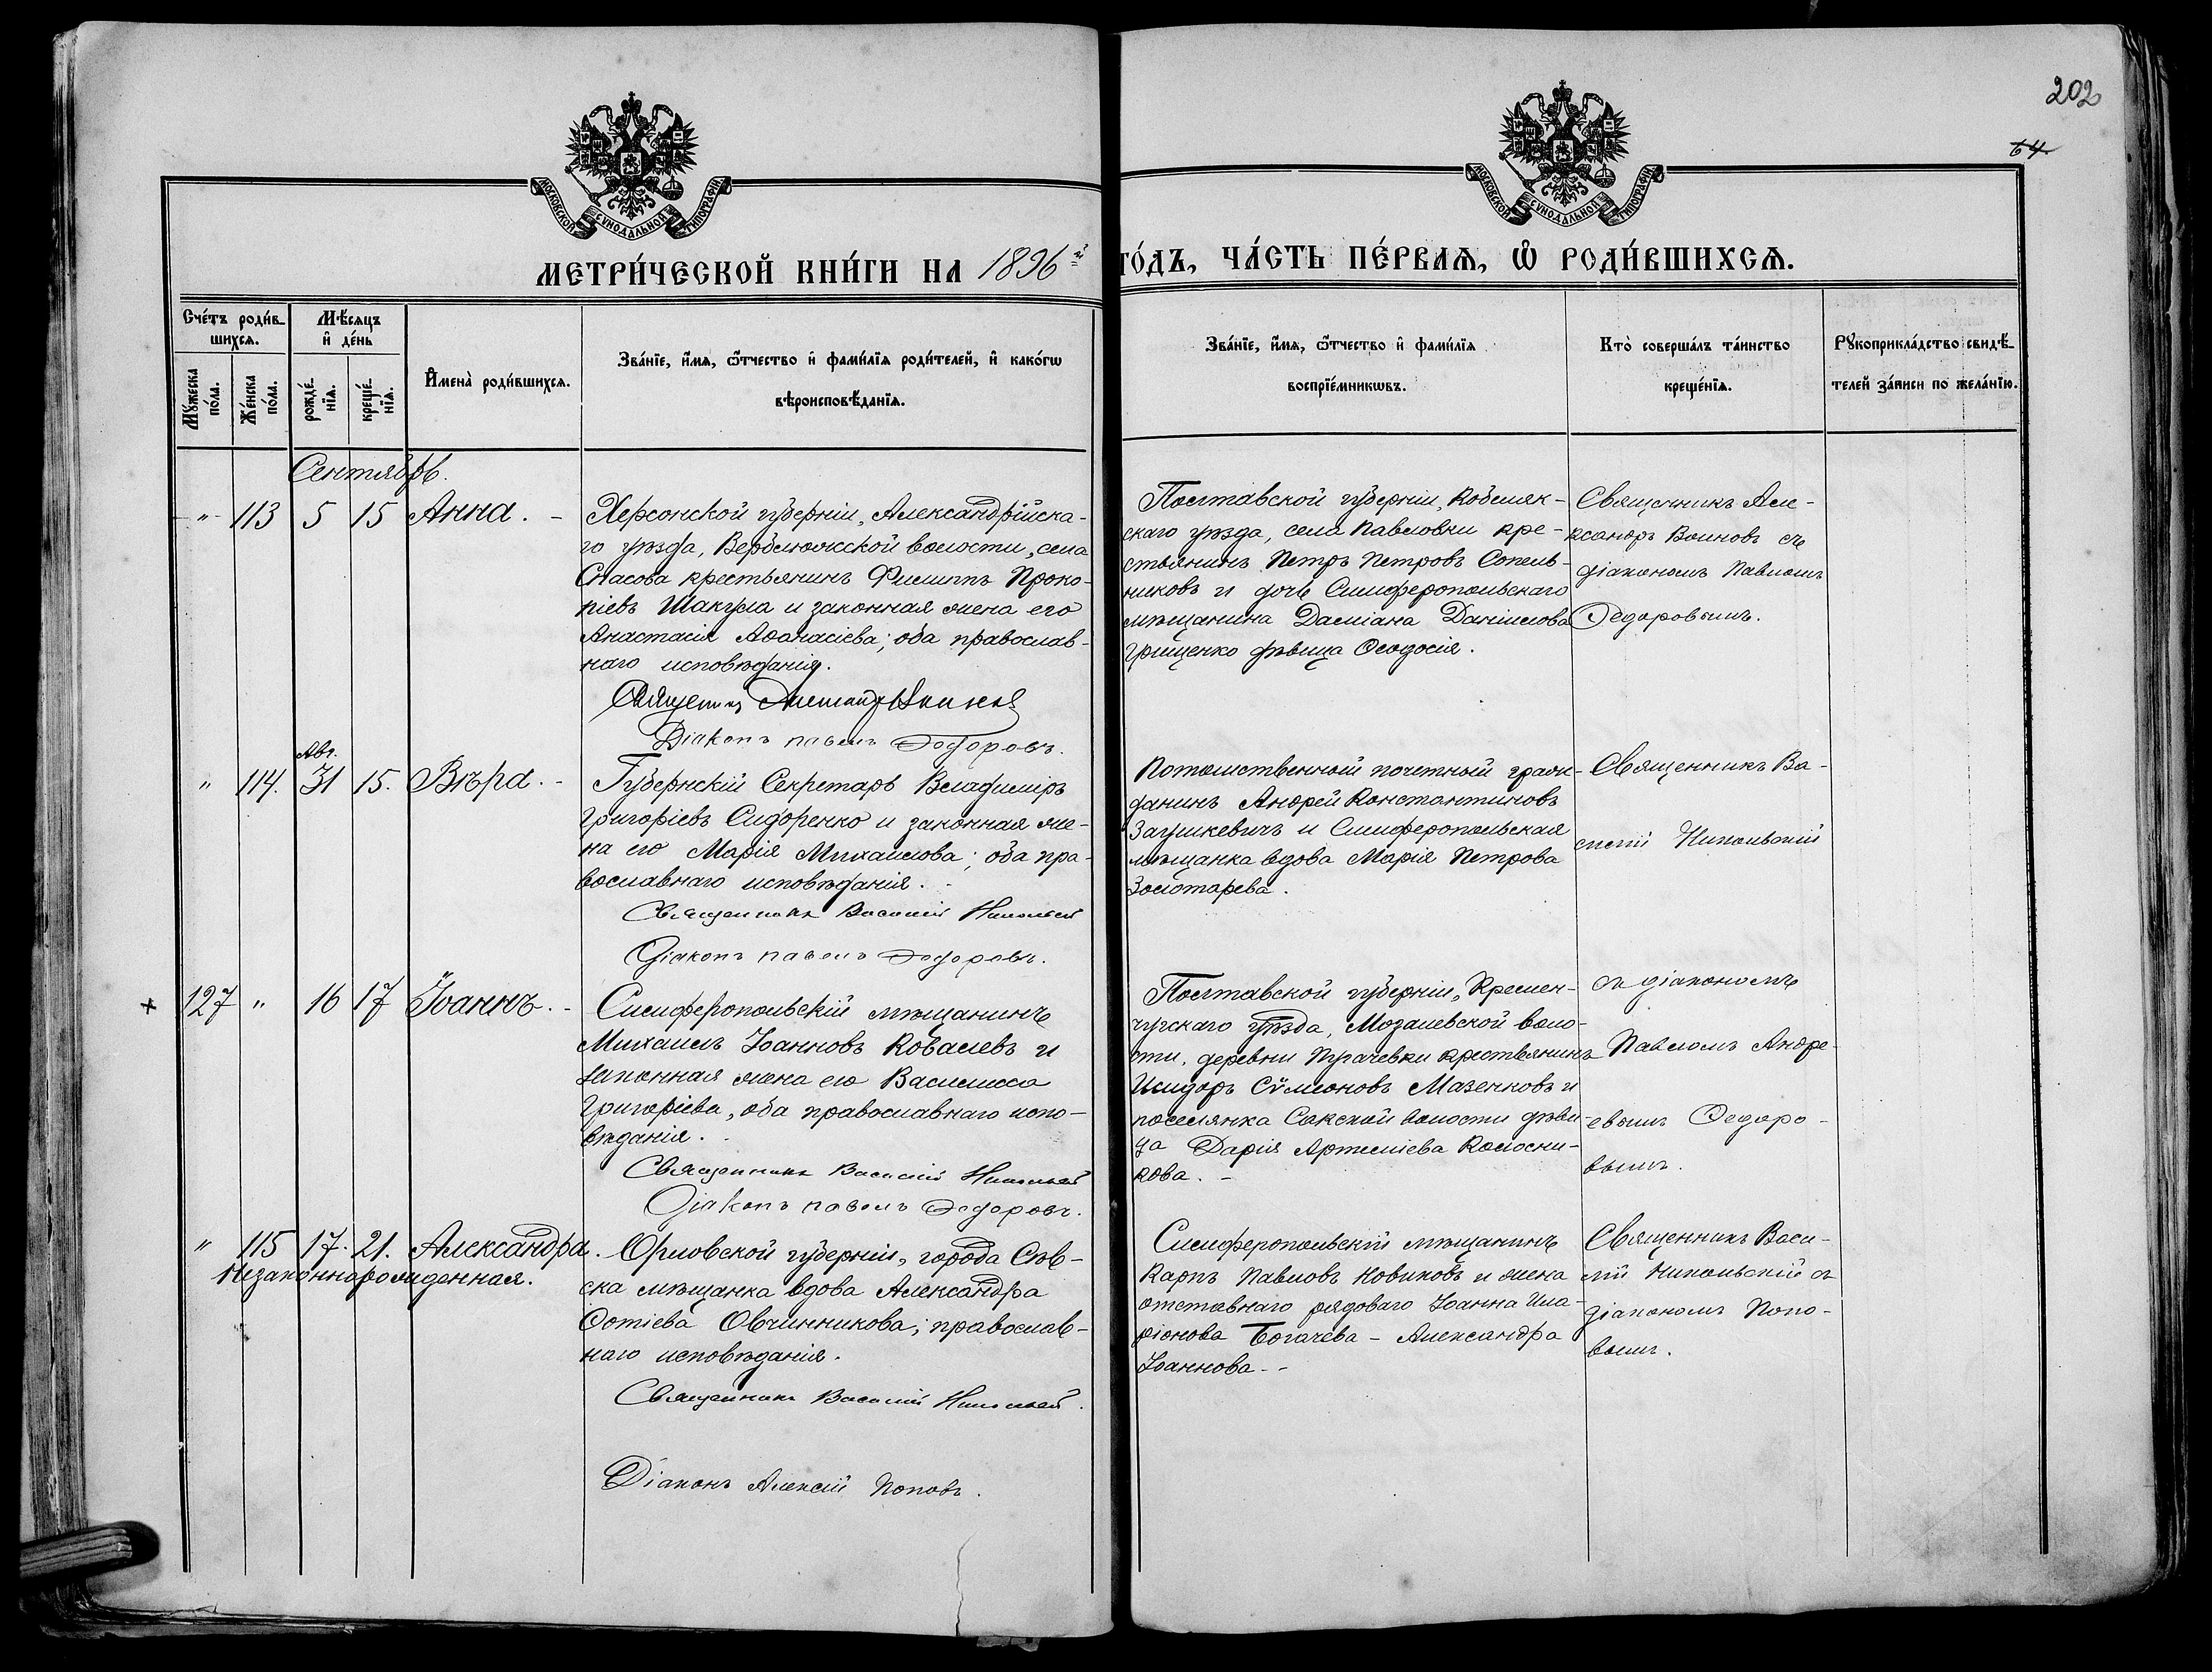 202
64.
МОСКОВСКОЙ СѴНОДАЛЬНОЙ ТИПОГРАФІИ
МОСКОВСКОЙ СѴНОДАЛЬНОЙ ТИПОГРАФІИ
МЕТРИ́ЧЕСКОЙ КНИ́ГИ НА 1896й
ГО́ДЪ, ЧА́СТЬ ПЕ́РВАѦ, Ѡ҆ РОДИ́ВШИХСѦ.
Сче́тъ роди́в-
шихсѧ.
Мѣ́сѧцъ
и҆ де́нь
Мꙋ́жеска
по́ла.
Же́нска
по́ла.
рожде́-
нїѧ.
креще́-
нїѧ.
И҆мена̀ роди́вшихсѧ.
Зва́нїе, и҆́мѧ, ѻ҆́тчество и҆ фами́лїѧ роди́телей, и҆ како́гѡ
вѣроисповѣ́данїѧ.
Зва́нїе, и҆́мѧ, ѻ҆́тчество и҆ фами́лїѧ
воспрїе́мникѡвъ.
Кто̀ соверша́лъ та́инство
креще́нїѧ.
Рꙋкоприкла́дство свидѣ́-
телей за́писи по жела́нїю.
Сентябрь.
" 113 5 15 Анна. -
Херсонской губерніи, Александрійска-
го уѣзда, Верблюжской волости, села
Спасова крестьянинъ Филиппъ Проко-
піевъ Шакула и законная жена его
Анастасія Аѳанасіева; оба православ-
наго исповѣданія.
Священникъ Александръ Воиновъ
Діаконъ Павелъ Ѳедоровъ.
Полтавской губерніи, Кобеляк-
скаго уѣзда, села Павловки кре-
стьянинъ Петръ Петровъ Сопель-
никовъ и дочь Симферопольскаго
мѣщанина Даміана Даніилова
Грищенко дѣвица Ѳеодосія.
Священникъ Але-
ксандръ Воиновъ съ
діакономъ Павломъ
Ѳедоровымъ.
Авг.
" 114. 31 15. Вѣра. -
Губернскій Секретарь Владиміръ
Григоріевъ Сидоренко и законная же-
на его Марія Михаилова; оба пра-
вославнаго исповѣданія. -
Священникъ Василій Никольскій
Діаконъ Павелъ Ѳедоровъ.
Потомственный почетный граж-
данинъ Андрей Константиновъ
Загушкевичъ и Симферопольская
мѣщанка вдова Марія Петрова
Золотарева.
Священникъ Ва-
силій Никольскій
+ 127 " 16 17 Іоаннъ. -
Симферопольскій мѣщанинъ
Михаилъ Іоанновъ Ковалевъ и
законная жена его Василисса
Григоріева, оба православнаго испо-
вѣданія.
Священникъ Василій Никольскій
Діаконъ Павелъ Ѳедоровъ.
Полтавской губерніи, Кремен-
чугскаго уѣзда, Мозалевской воло-
сти, деревни Пугачевки крестьянинъ
Исидоръ Сѵмеоновъ Мазенковъ и
поселянка Сакской волости дѣви-
ца Дарія Артеміева Колосни-
кова. -
съ діакономъ
Павломъ Андре-
евымъ Ѳедоро-
вымъ.
" 115 17. 21. Александра.
Незаконнорожденная.
Орловской губерніи, города Сѣв-
ска мѣщанка вдова Александра
Фотіева Овчинникова; православ-
наго исповѣданія.
Священникъ Василій Никольскій.
Діаконъ Алексій Поповъ.
Симферопольскій мѣщанинъ
Карпъ Павловъ Новиковъ и жена
отставнаго рядоваго Іоанна Ила-
ріонова Богачева - Александра
Іоаннова. -
Священникъ Васи-
лій Никольскій съ
діакономъ Попо-
вымъ.